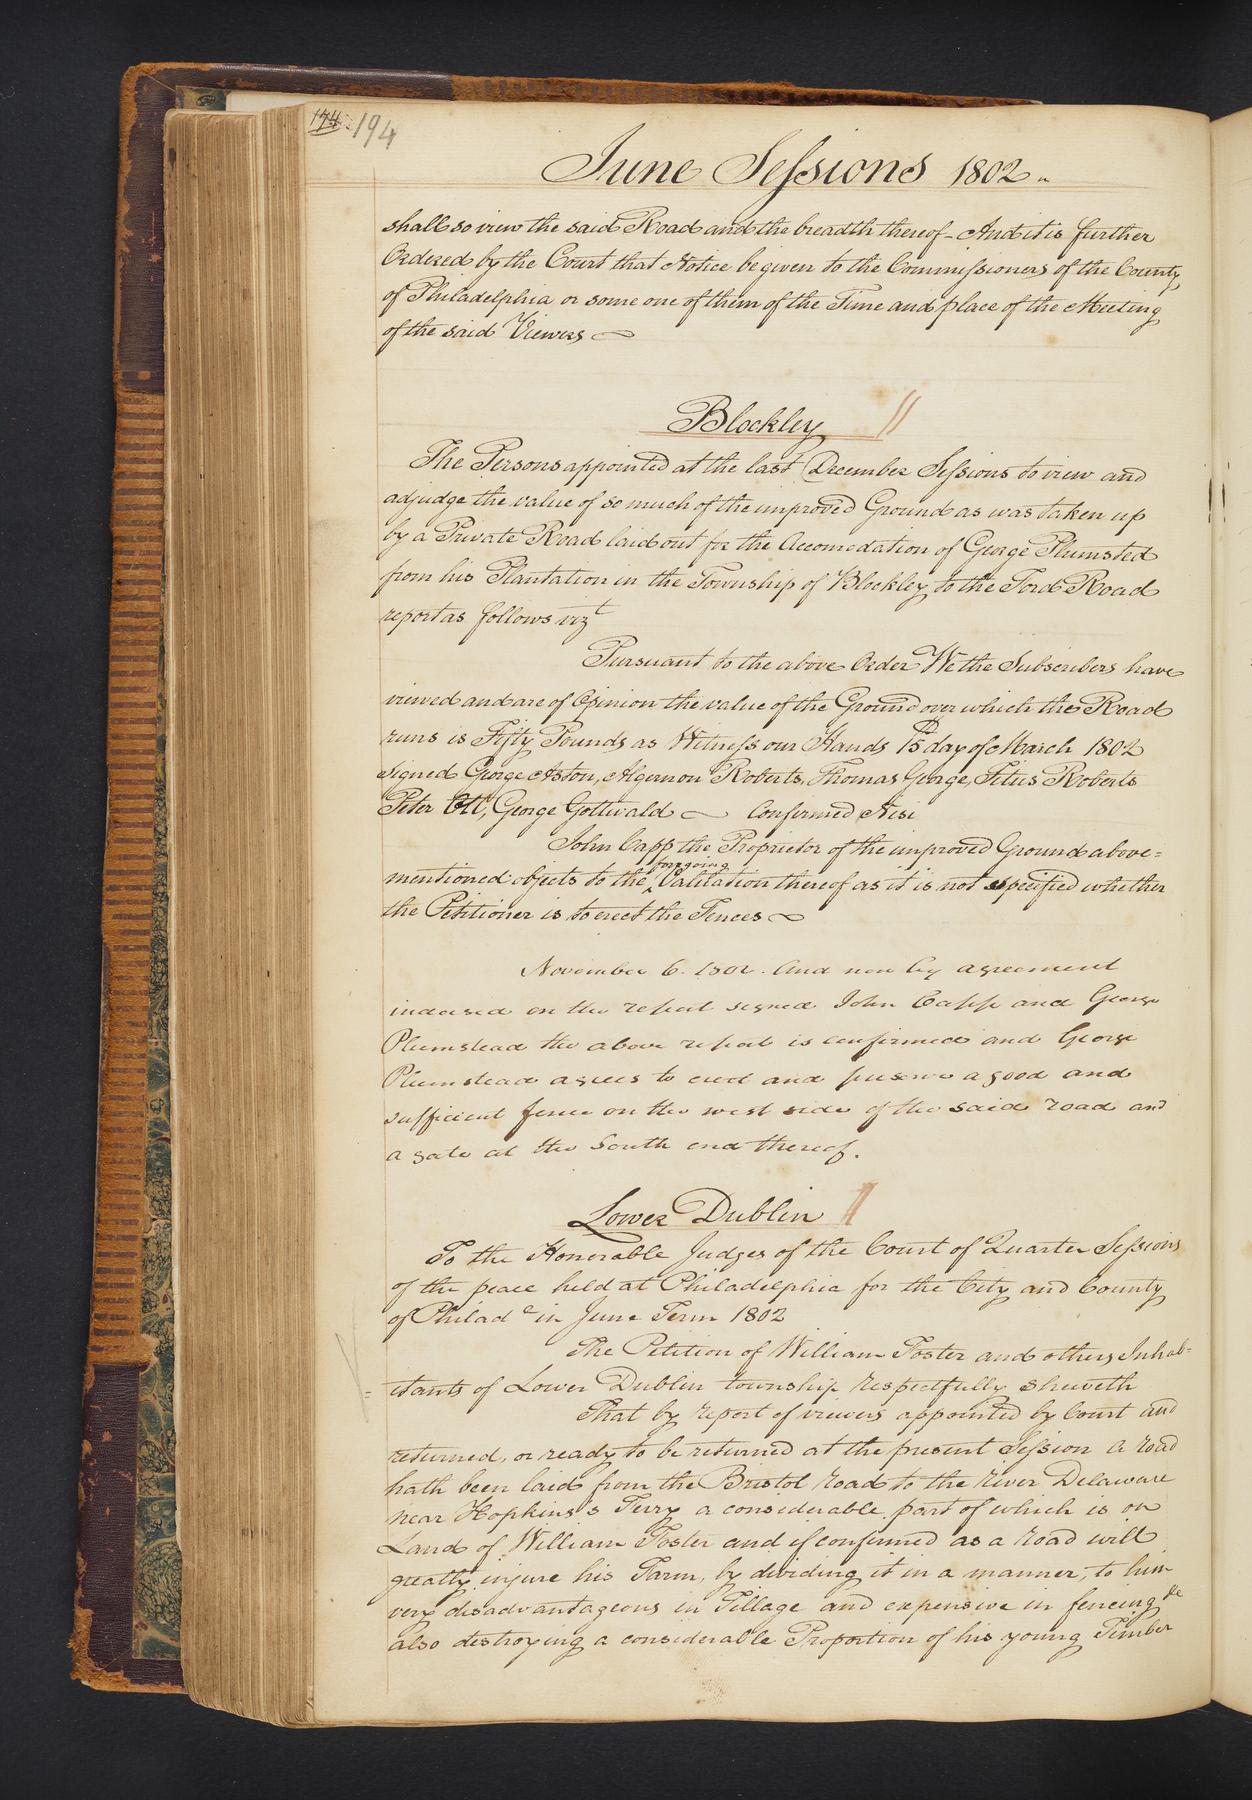 174 194
June Sessions 1802
shall so view the said Road and the breadth thereof - And it is further
Ordered by the Court that Notice be given to the Commissioners of the County
of Philadelphia or some one of them of the Time and place of the Meeting
of the said Viewers
Blockley
The Persons appointed at the last December Sessions to view and
adjudge the value of so much of the improved Ground as was taken up
by a Private Road laid out for the Accomodation of George Plumsted
from his Plantation in the Township of Blockley to the Ford Road
report as follows vizt
Pursuant to the above Order We the Subscribers have
viewed and are of Opinion the value of the Ground over which the Road
runs is Fifty Pounds as Witness our Hands 15 day of March 1802
signed George Aston, Algernon Roberts, Thomas George, Titus Roberts
Peter Ott, George Gottwald Confirmed Nisi
John Capp the Proprietor of the improved Ground above=
mentioned objects to the foregoing Valitation thereof as it is not specified whether
the Petitioner is to erect the Fences
November 6. 1802. And now by agreement
indorsed on the report signed John Capp and George
Plumstead the above report is confirmed and George
Plumstead agrees to erect and preserve a good and
sufficient fence on the west side of the said road and
a gate at the South end thereof.
Lower Dublin
To the Honorable Judges of the Court of Quarter Sessions
of the peace held at Philadelphia for the City and County
of Philada in June Term 1802
The Petition of William Foster and others Inhab=
=itants of Lower Dublin township respectfully sheweth
That by report of viewers appointed by Court and
returned, or ready to be returned at the present Session a road
hath been laid from the Bristol road to the river Delaware
near Hopkins's Ferry a considerable part of which is on
Land of William Foster and if confirmed as a road will
greatly injure his Farm, by dividing it in a manner, to him
very disadvantageous in Tillage and expensive in fencing &c
also destroying a considerable Proportion of his young Timber